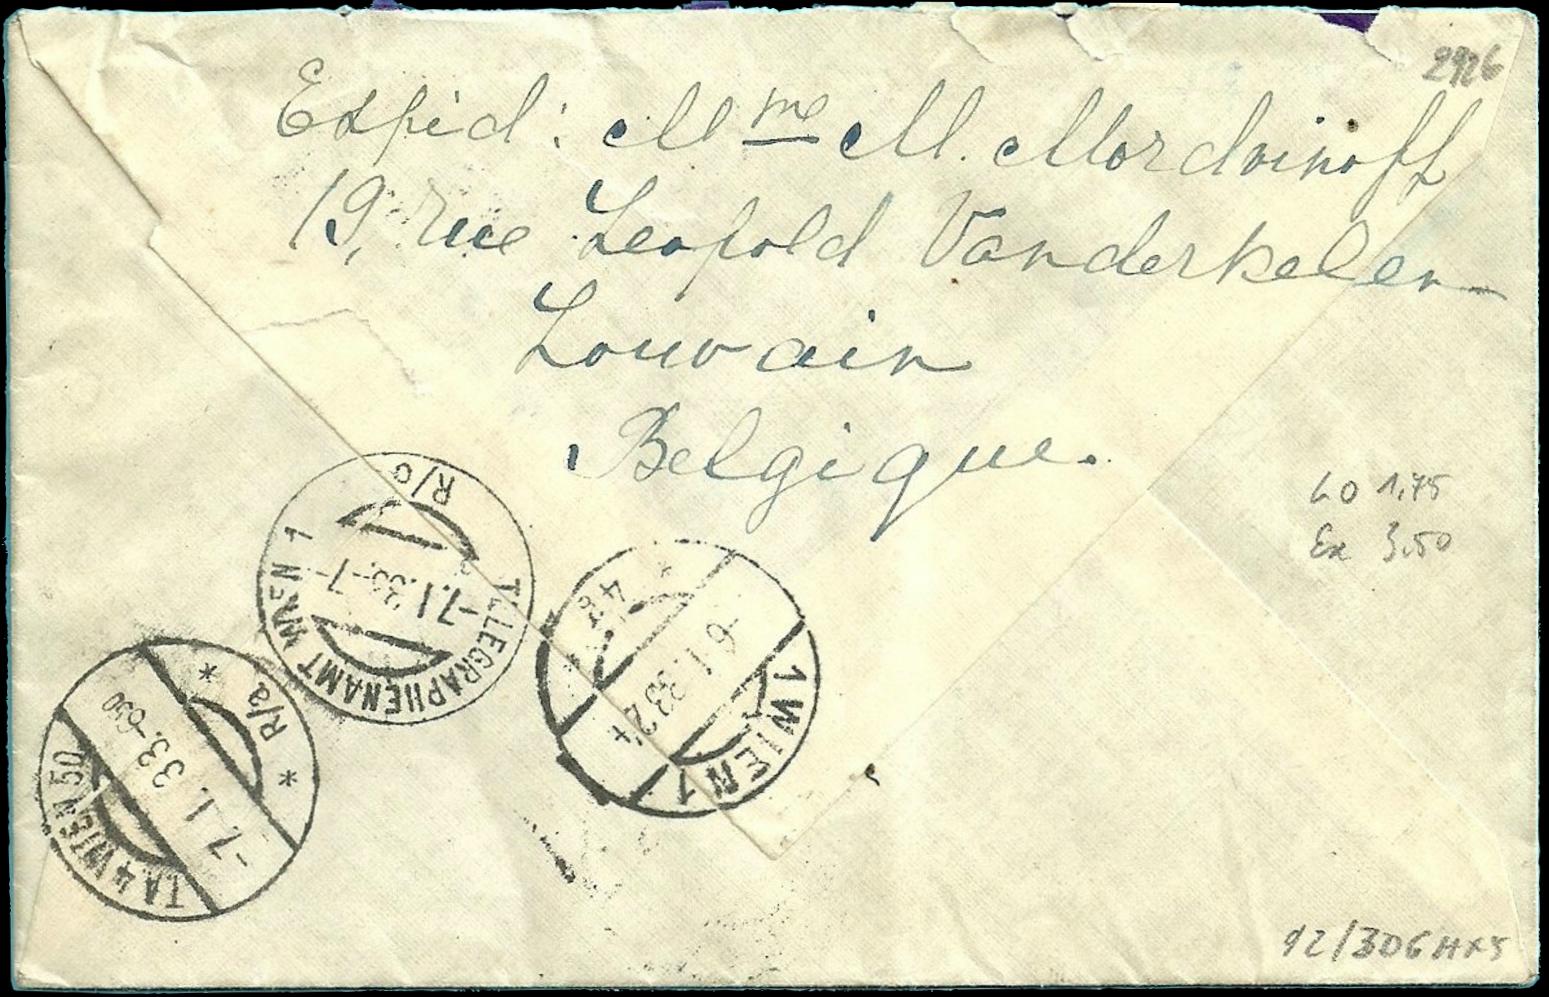 2926
Expéd: Mme M. Mordvinoff
19, rue Leopold Vanderkelen
Louvain
Belgique.
LO 1,75
Ex 3.50
TELEGRAPHENAMT WIEN 1
-7.I.33.-7
R/c
1 WIEN 1
-6.I.33 24
T.A. 4 WIEN 50
-7.I.33.-630
* R/a *
92/306HXS